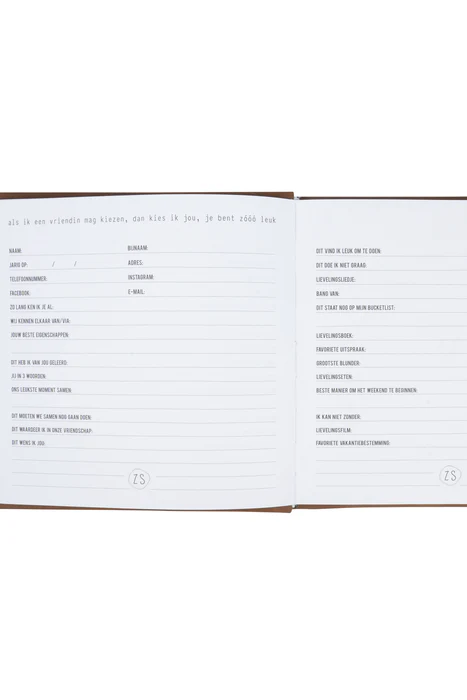 als ik een vriendin mag kiezen, dan kies ik jou, je bent zóóó leuk
NAAM: BIJNAAM:
JARIG OP: / / ADRES:
TELEFOONNUMMER: INSTAGRAM:
FACEBOOK: E-MAIL:
ZO LANG KEN IK JE AL:
WIJ KENNEN ELKAAR VAN/VIA:
JOUW BESTE EIGENSCHAPPEN:
DIT HEB IK VAN JOU GELEERD:
JIJ IN 3 WOORDEN:
ONS LEUKSTE MOMENT SAMEN:
DIT MOETEN WE SAMEN NOG GAAN DOEN:
DIT WAARDEER IK IN ONZE VRIENDSCHAP:
DIT WENS IK JOU:
ZS
DIT VIND IK LEUK OM TE DOEN:
DIT DOE IK NIET GRAAG:
LIEVELINGSLIEDJE:
BANG VAN:
DIT STAAT NOG OP MIJN BUCKETLIST:
LIEVELINGSBOEK:
FAVORIETE UITSPRAAK:
GROOTSTE BLUNDER:
LIEVELINGSETEN:
BESTE MANIER OM HET WEEKEND TE BEGINNEN:
IK KAN NIET ZONDER:
LIEVELINGSFILM:
FAVORIETE VAKANTIEBESTEMMING:
ZS